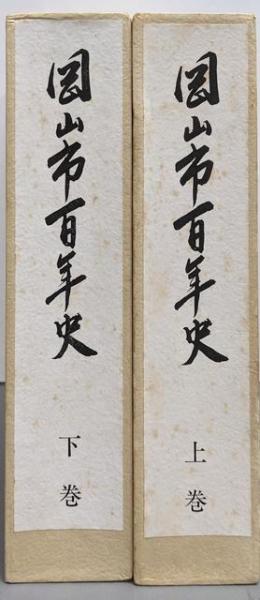 岡山市百年史
上巻
岡山市百年史
下巻